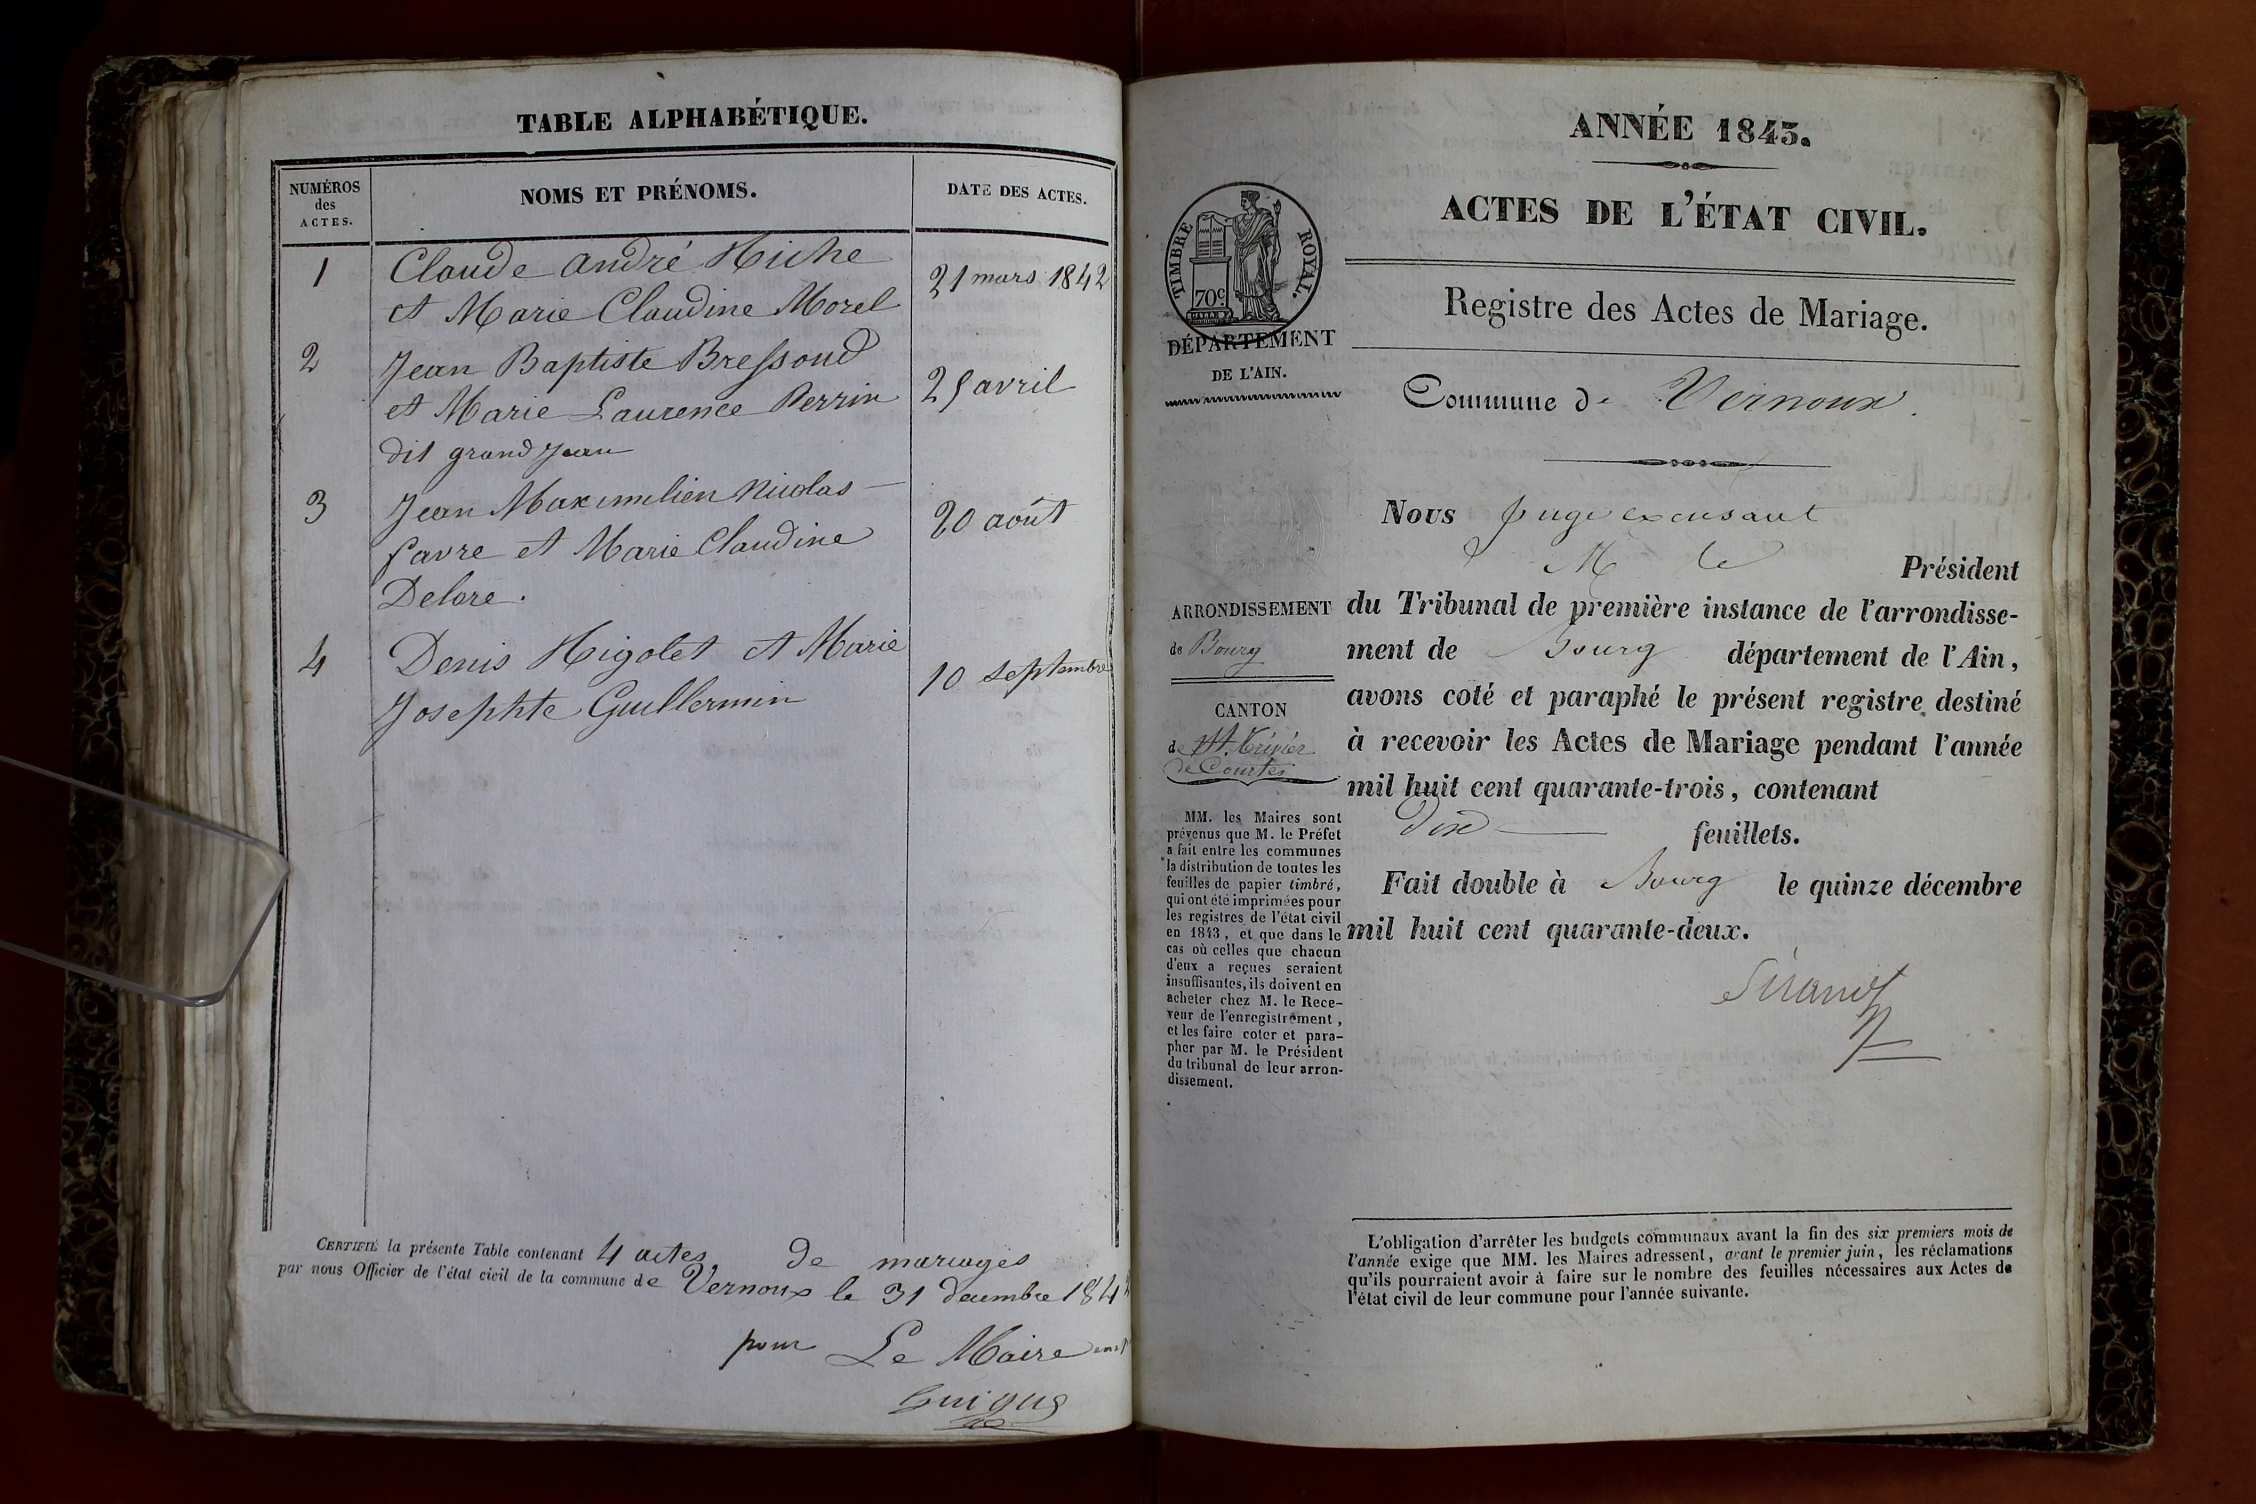 TABLE ALPHABÉTIQUE.
NUMÉROS
des
ACTES.
NOMS ET PRÉNOMS.
DATE DES ACTES.
1
Claude André Hiche
21 mars 1842
et Marie Claudine Morel
2
Jean Baptiste Bressoud
25 avril
et Marie Laurence Perrin
dit grand Jean
3
Jean Maximilien Nicolas
20 août
favre et Marie Claudine
Delore.
4
Denis Higolet et Marie
10 septembre
Josephte Guillermin
CERTIFIÉ la présente Table contenant 4 actes de mariages
par nous Officier de l'état civil de la commune de Vernoux le 31 décembre 1842
pour Le Maire
Guigue
ANNÉE 1843.
ACTES DE L'ÉTAT CIVIL.
TIMBRE ROYAL.
70c.
Registre des Actes de Mariage.
DÉPARTEMENT
DE L'AIN.
Commune de Vernoux.
Nous Juge excusant
M le Président
ARRONDISSEMENT
de Bourg
CANTON
de St. Trivier
de Courtes
du Tribunal de première instance de l'arrondisse-
ment de Bourg département de l'Ain,
avons coté et paraphé le présent registre destiné
à recevoir les Actes de Mariage pendant l'année
mil huit cent quarante-trois, contenant
dix feuillets.
Fait double à Bourg le quinze décembre
mil huit cent quarante-deux.
Sirand
MM. les Maires sont
prévenus que M. le Préfet
a fait entre les communes
la distribution de toutes les
feuilles de papier timbré,
qui ont été imprimées pour
les registres de l'état civil
en 1843, et que dans le
cas où celles que chacun
d'eux a reçues seraient
insuffisantes, ils doivent en
acheter chez M. le Rece-
veur de l'enregistrement,
et les faire coter et para-
pher par M. le Président
du tribunal de leur arron-
dissement.
L'obligation d'arrêter les budgets communaux avant la fin des six premiers mois de
l'année exige que MM. les Maires adressent, avant le premier juin, les réclamations
qu'ils pourraient avoir à faire sur le nombre des feuilles nécessaires aux Actes de
l'état civil de leur commune pour l'année suivante.